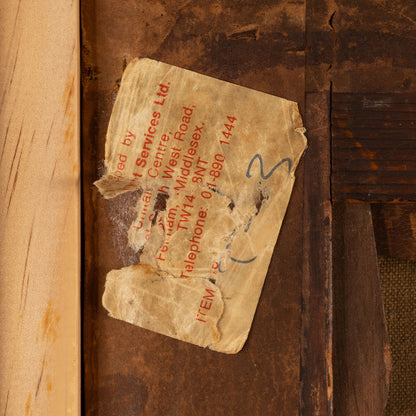 ped by
t Services Ltd.
Centre,
th West Road,
Feltham, Middlesex.
TW14 8NT
Telephone: 01-890 1444
ITEM